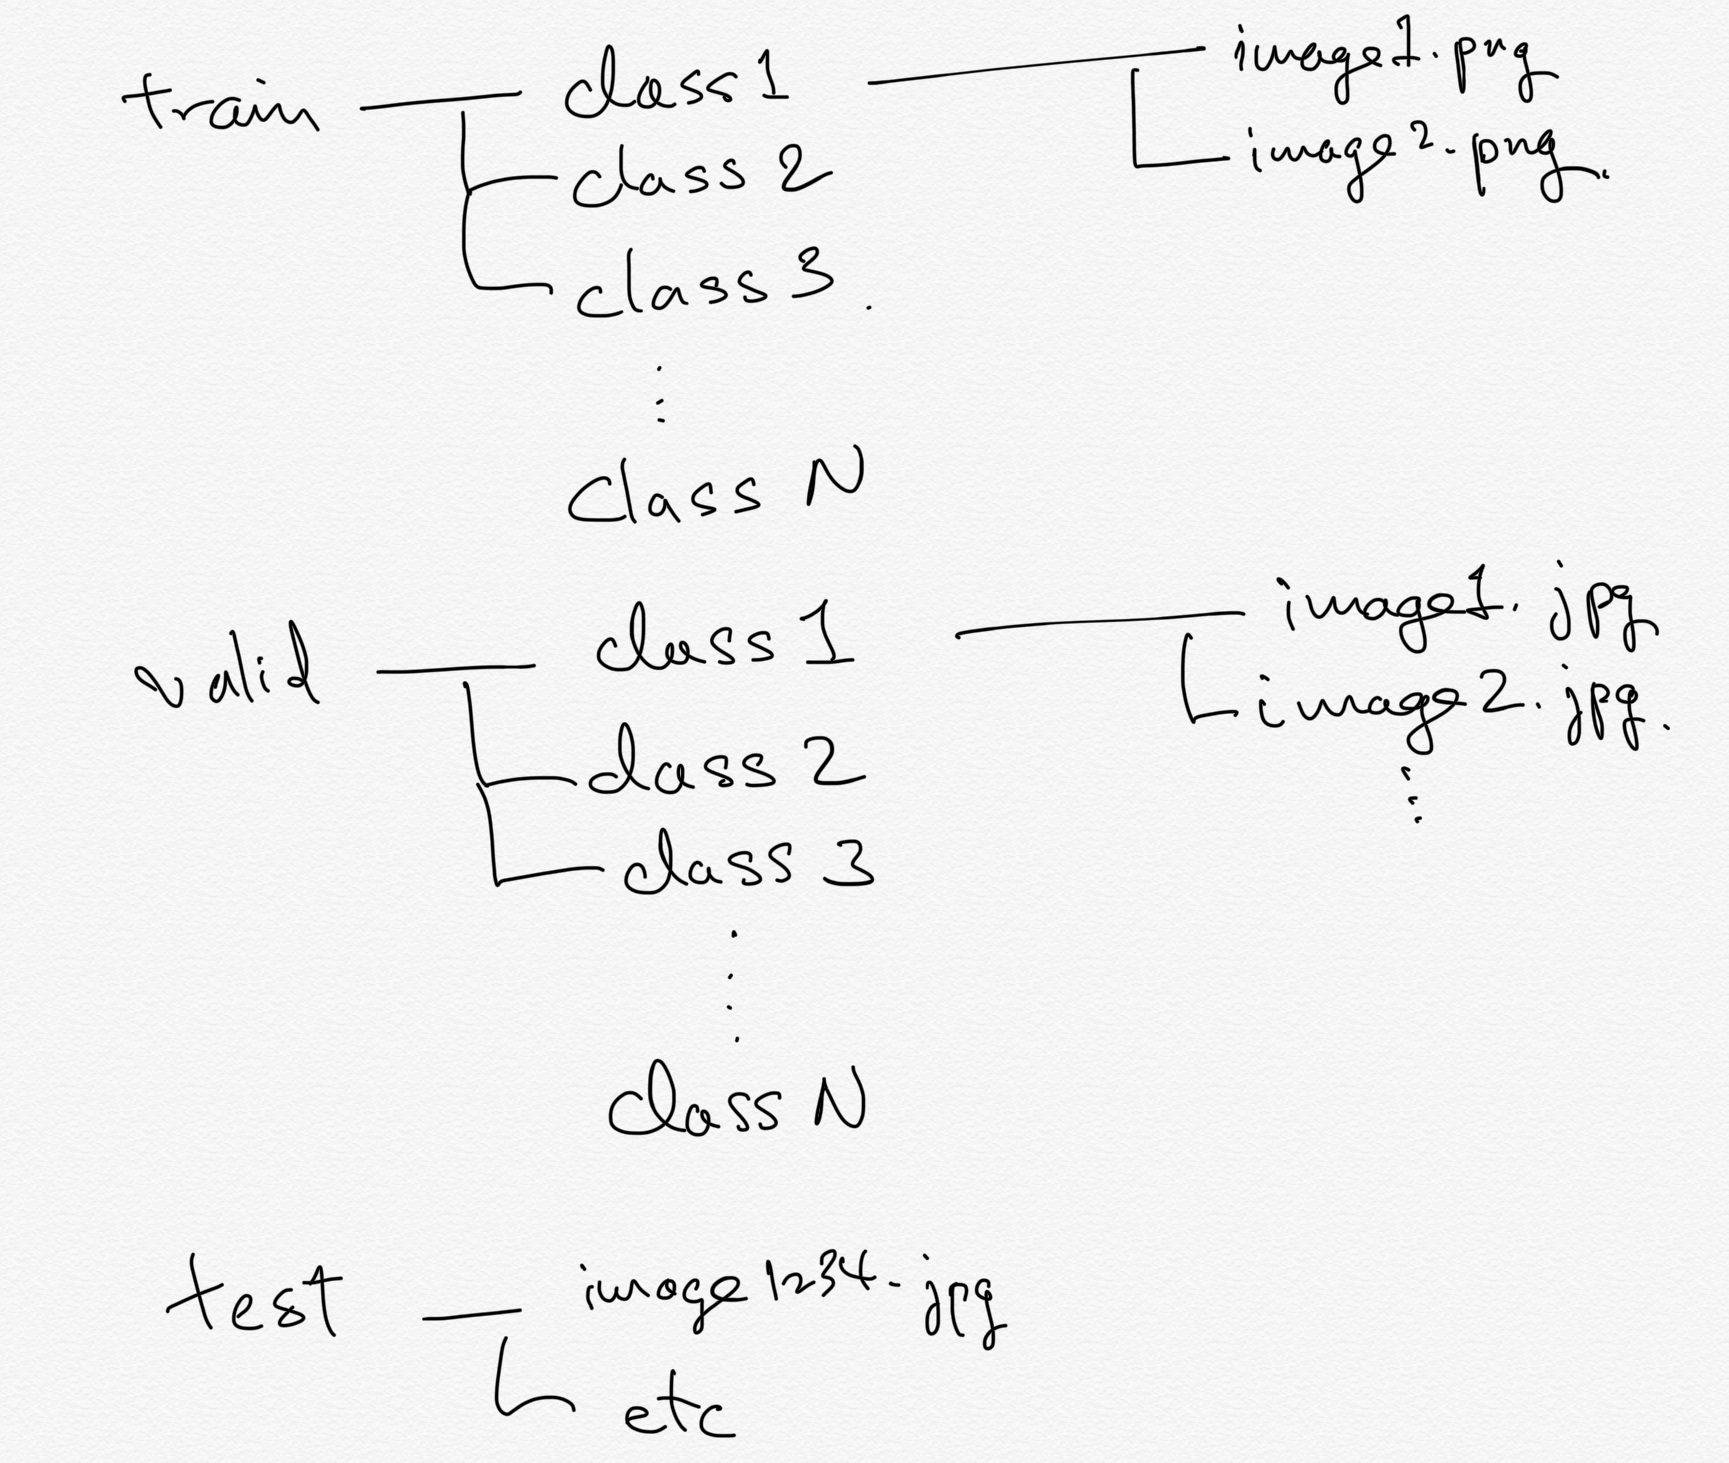 train class 1 image1.png
image2.png.
class 2
class 3 .
Class N
valid class 1 image1.jpg
image2.jpg.
class 2
class 3
class N
test image1234.jpg
etc